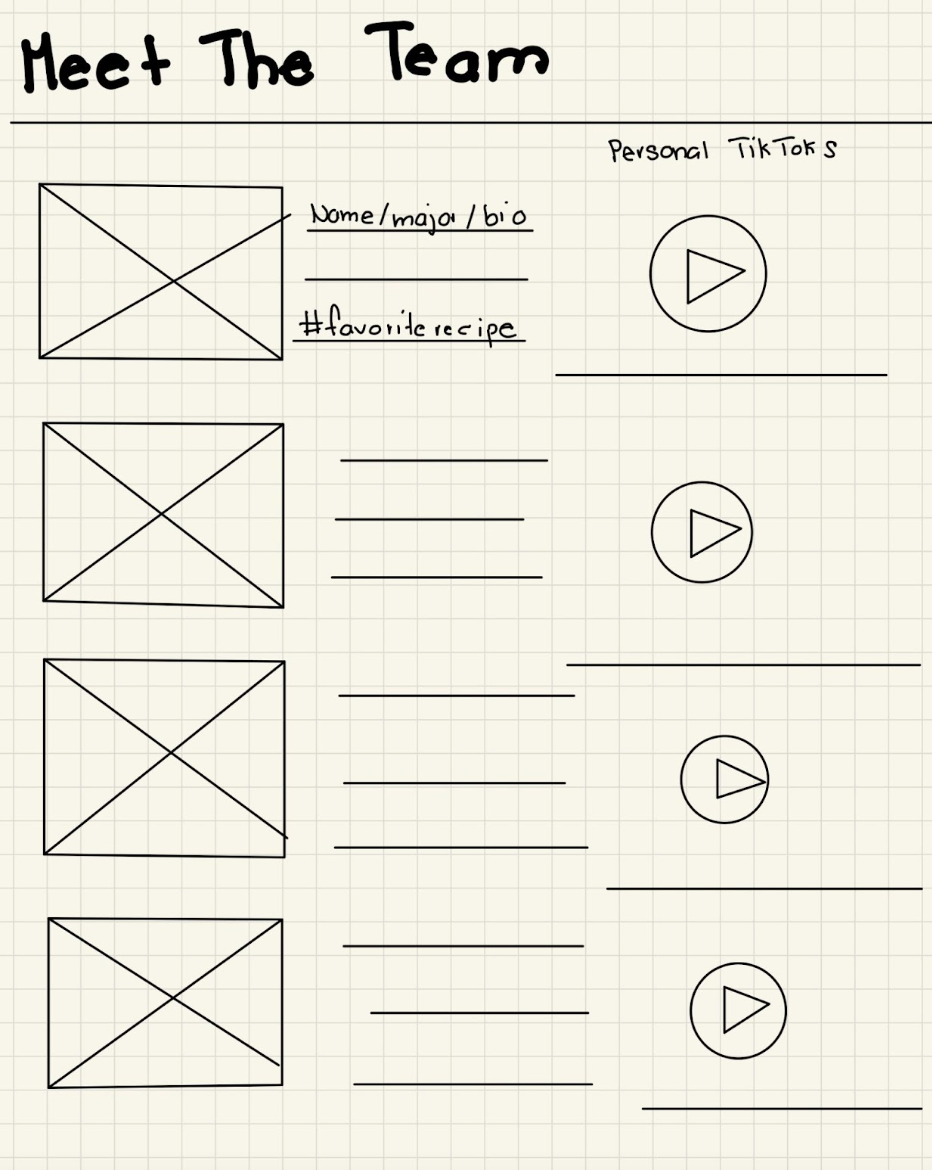 Meet The Team
Personal TikToks
Name/major/bio
#favorite recipe